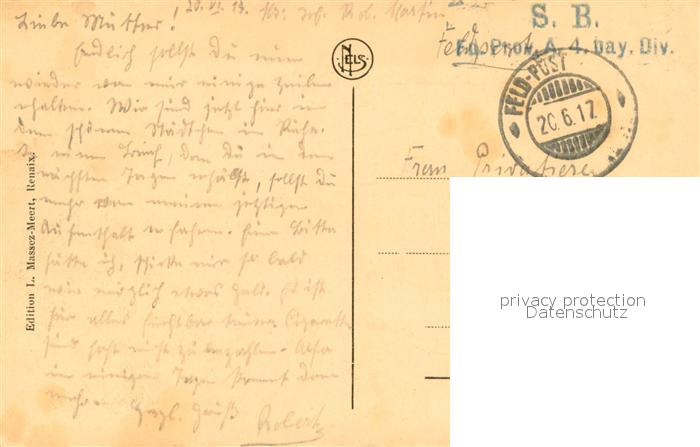 20. VI. 17. Rob. Martin
Liebe Mutter!
Endlich sollst du nun
wieder von mir einige Zeilen
erhalten. Wir sind jetzt hier in
dem schönen Städtchen in Ruhe.
In einem Brief, den du in den
nächsten Tagen erhälst, sollst du
mehr von meinem jetzigen
Aufenthalt erfahren. Eine Bitte
hätte ich, schicke mir so bald
wie möglich etwas Geld. Es ist
hier alles furchtbar teuer Cigaretten
sind fast nicht zu bezahlen. Also
in einigen Tagen kommt dann
mehr
Herzl. Gruß
Robert
Edition L. Massez-Meert, Renaix.
NELS
S. B.
Feldpost
Fd. Prov. A. 4. bay. Div.
FELD-POST
20.6.17
Frau Privatiere
privacy protection
Datenschutz